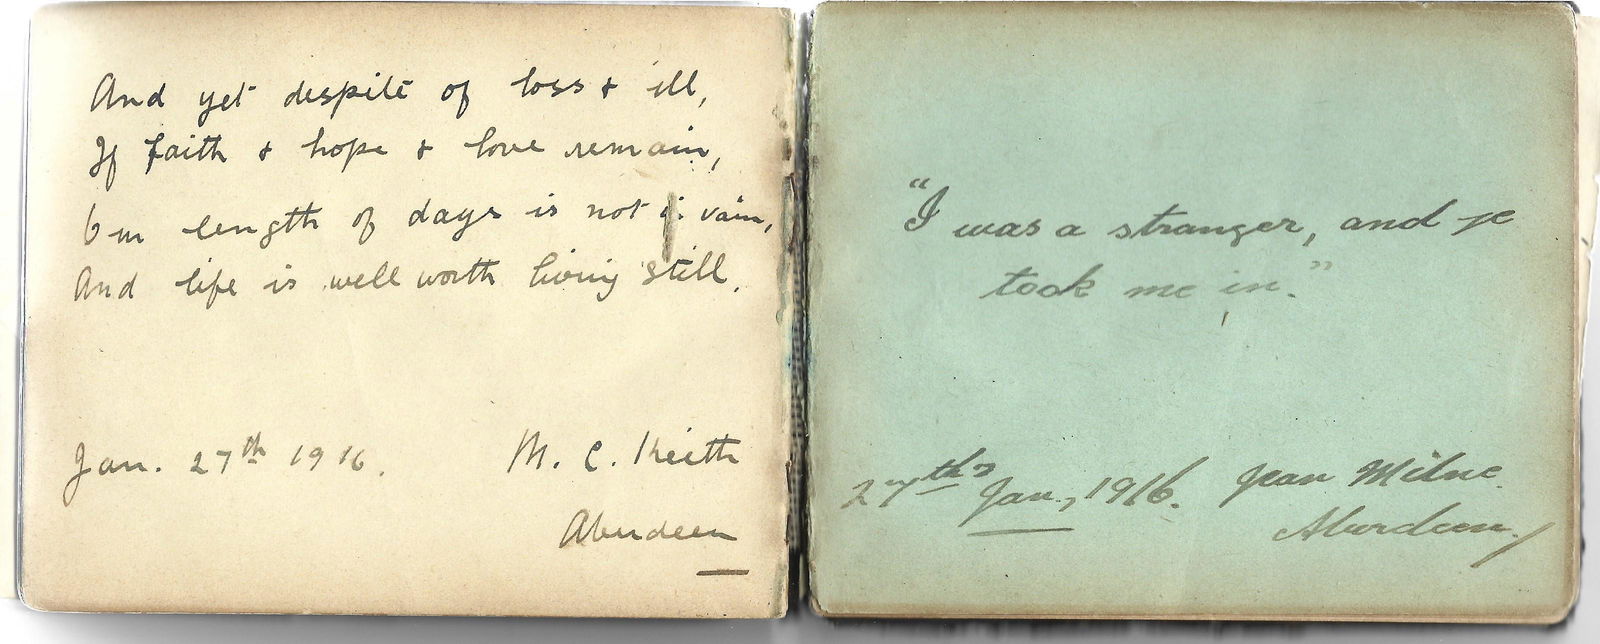 And yet despite of loss & ill,
If faith & hope & love remain,
Our length of days is not in vain,
And life is well worth living still.
Jan. 27th 1916.
M. C. Keith
Aberdeen
"I was a stranger, and ye
took me in."
27th Jan, 1916.
Jean Milne.
Aberdeen.